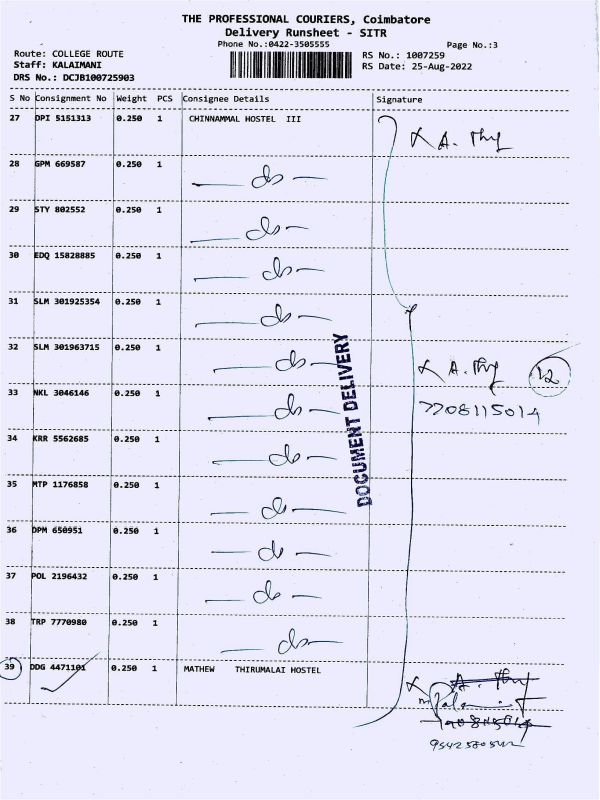 THE PROFESSIONAL COURIERS, Coimbatore
Delivery Runsheet - SITR
Phone No.:0422-3505555
Page No.:3
Route: COLLEGE ROUTE
RS No.: 1007259
Staff: KALAIMANI
RS Date: 25-Aug-2022
DRS No.: DCJB100725903
S No Consignment No Weight PCS Consignee Details Signature
27 DPI 5151313 0.250 1 CHINNAMMAL HOSTEL III
28 GPM 669587 0.250 1 — do —
29 STY 802552 0.250 1 — do —
30 EDQ 15828885 0.250 1 — do —
31 SLM 301925354 0.250 1 — do —
32 SLM 301963715 0.250 1 — do —
12
33 NKL 3046146 0.250 1 — do —
7708115014
34 KRR 5562685 0.250 1 — do —
35 MTP 1176858 0.250 1 — do —
36 DPM 650951 0.250 1 — do —
37 POL 2196432 0.250 1 — do —
38 TRP 7770980 0.250 1 — do —
39 DDG 4471101 0.250 1 MATHEW THIRUMALAI HOSTEL
DOCUMENT DELIVERY